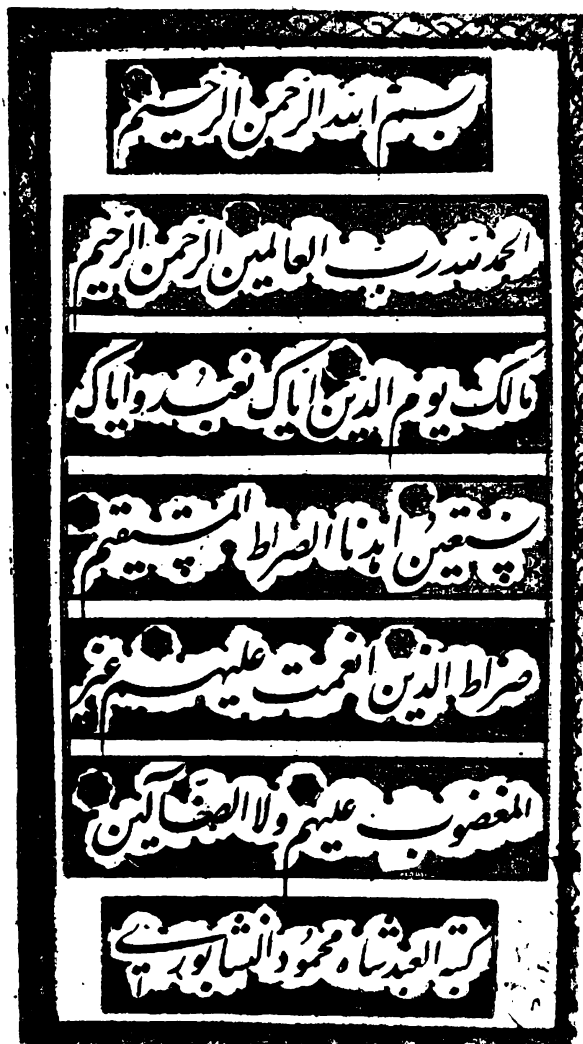 بسم الله الرحمن الرحیم
الحمد لله رب العالمین الرحمن الرحیم
مالک یوم الدین ایاک نعبد وایاک
نستعین اهدنا الصراط المستقیم
صراط الذین انعمت علیهم غیر
المغضوب علیهم ولا الضآلین
کتبه العبد شاه محمود النیشابوری